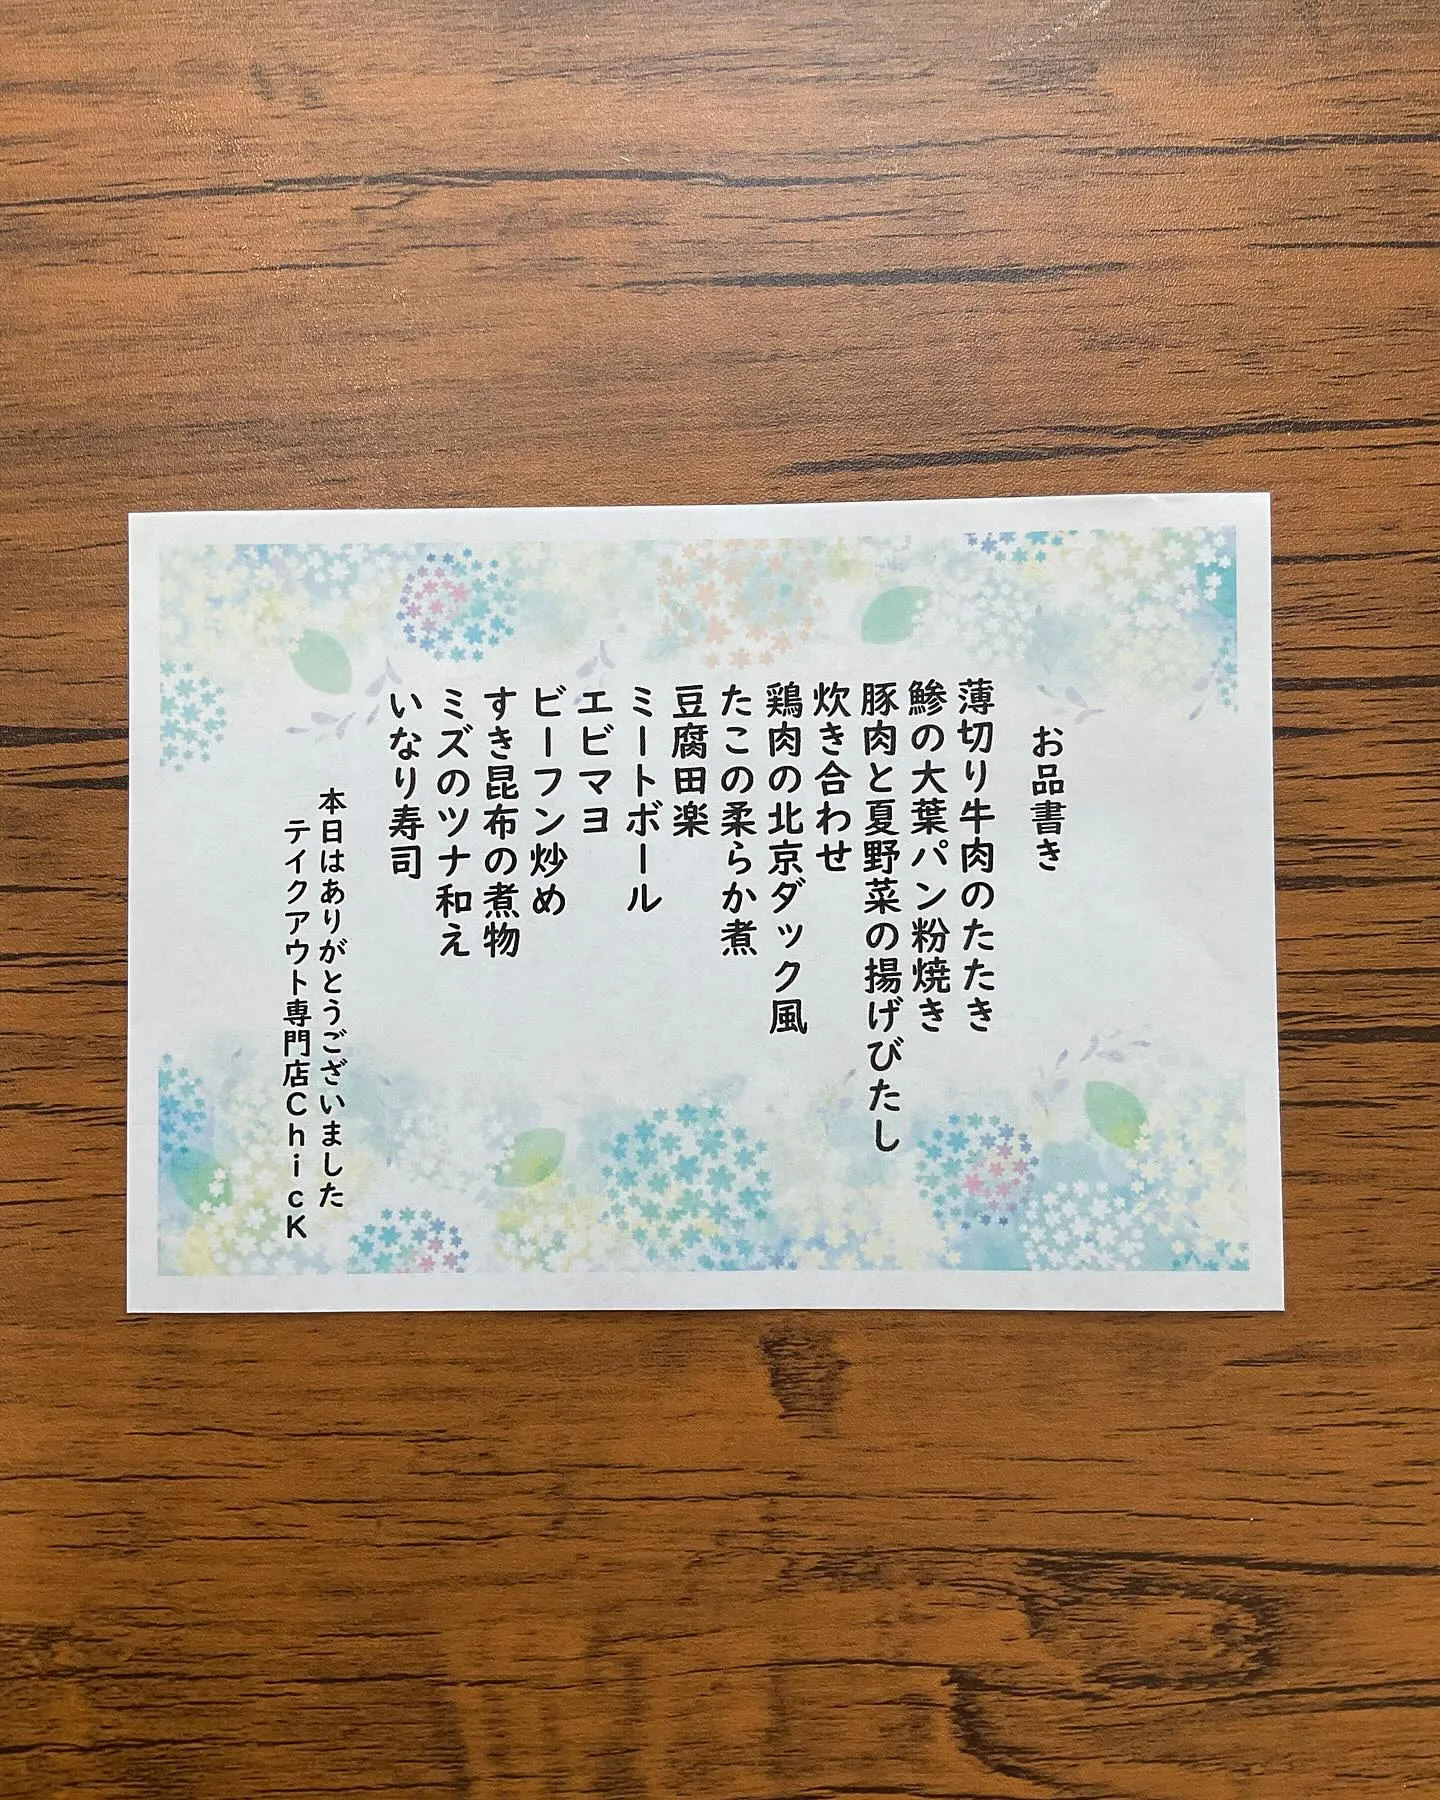 お品書き
薄切り牛肉のたたき
鯵の大葉パン粉焼き
豚肉と夏野菜の揚げびたし
炊き合わせ
鶏肉の北京ダック風
たこの柔らか煮
豆腐田楽
ミートボール
エビマヨ
ビーフン炒め
すき昆布の煮物
ミズのツナ和え
いなり寿司
本日はありがとうございました
テイクアウト専門店ChicK